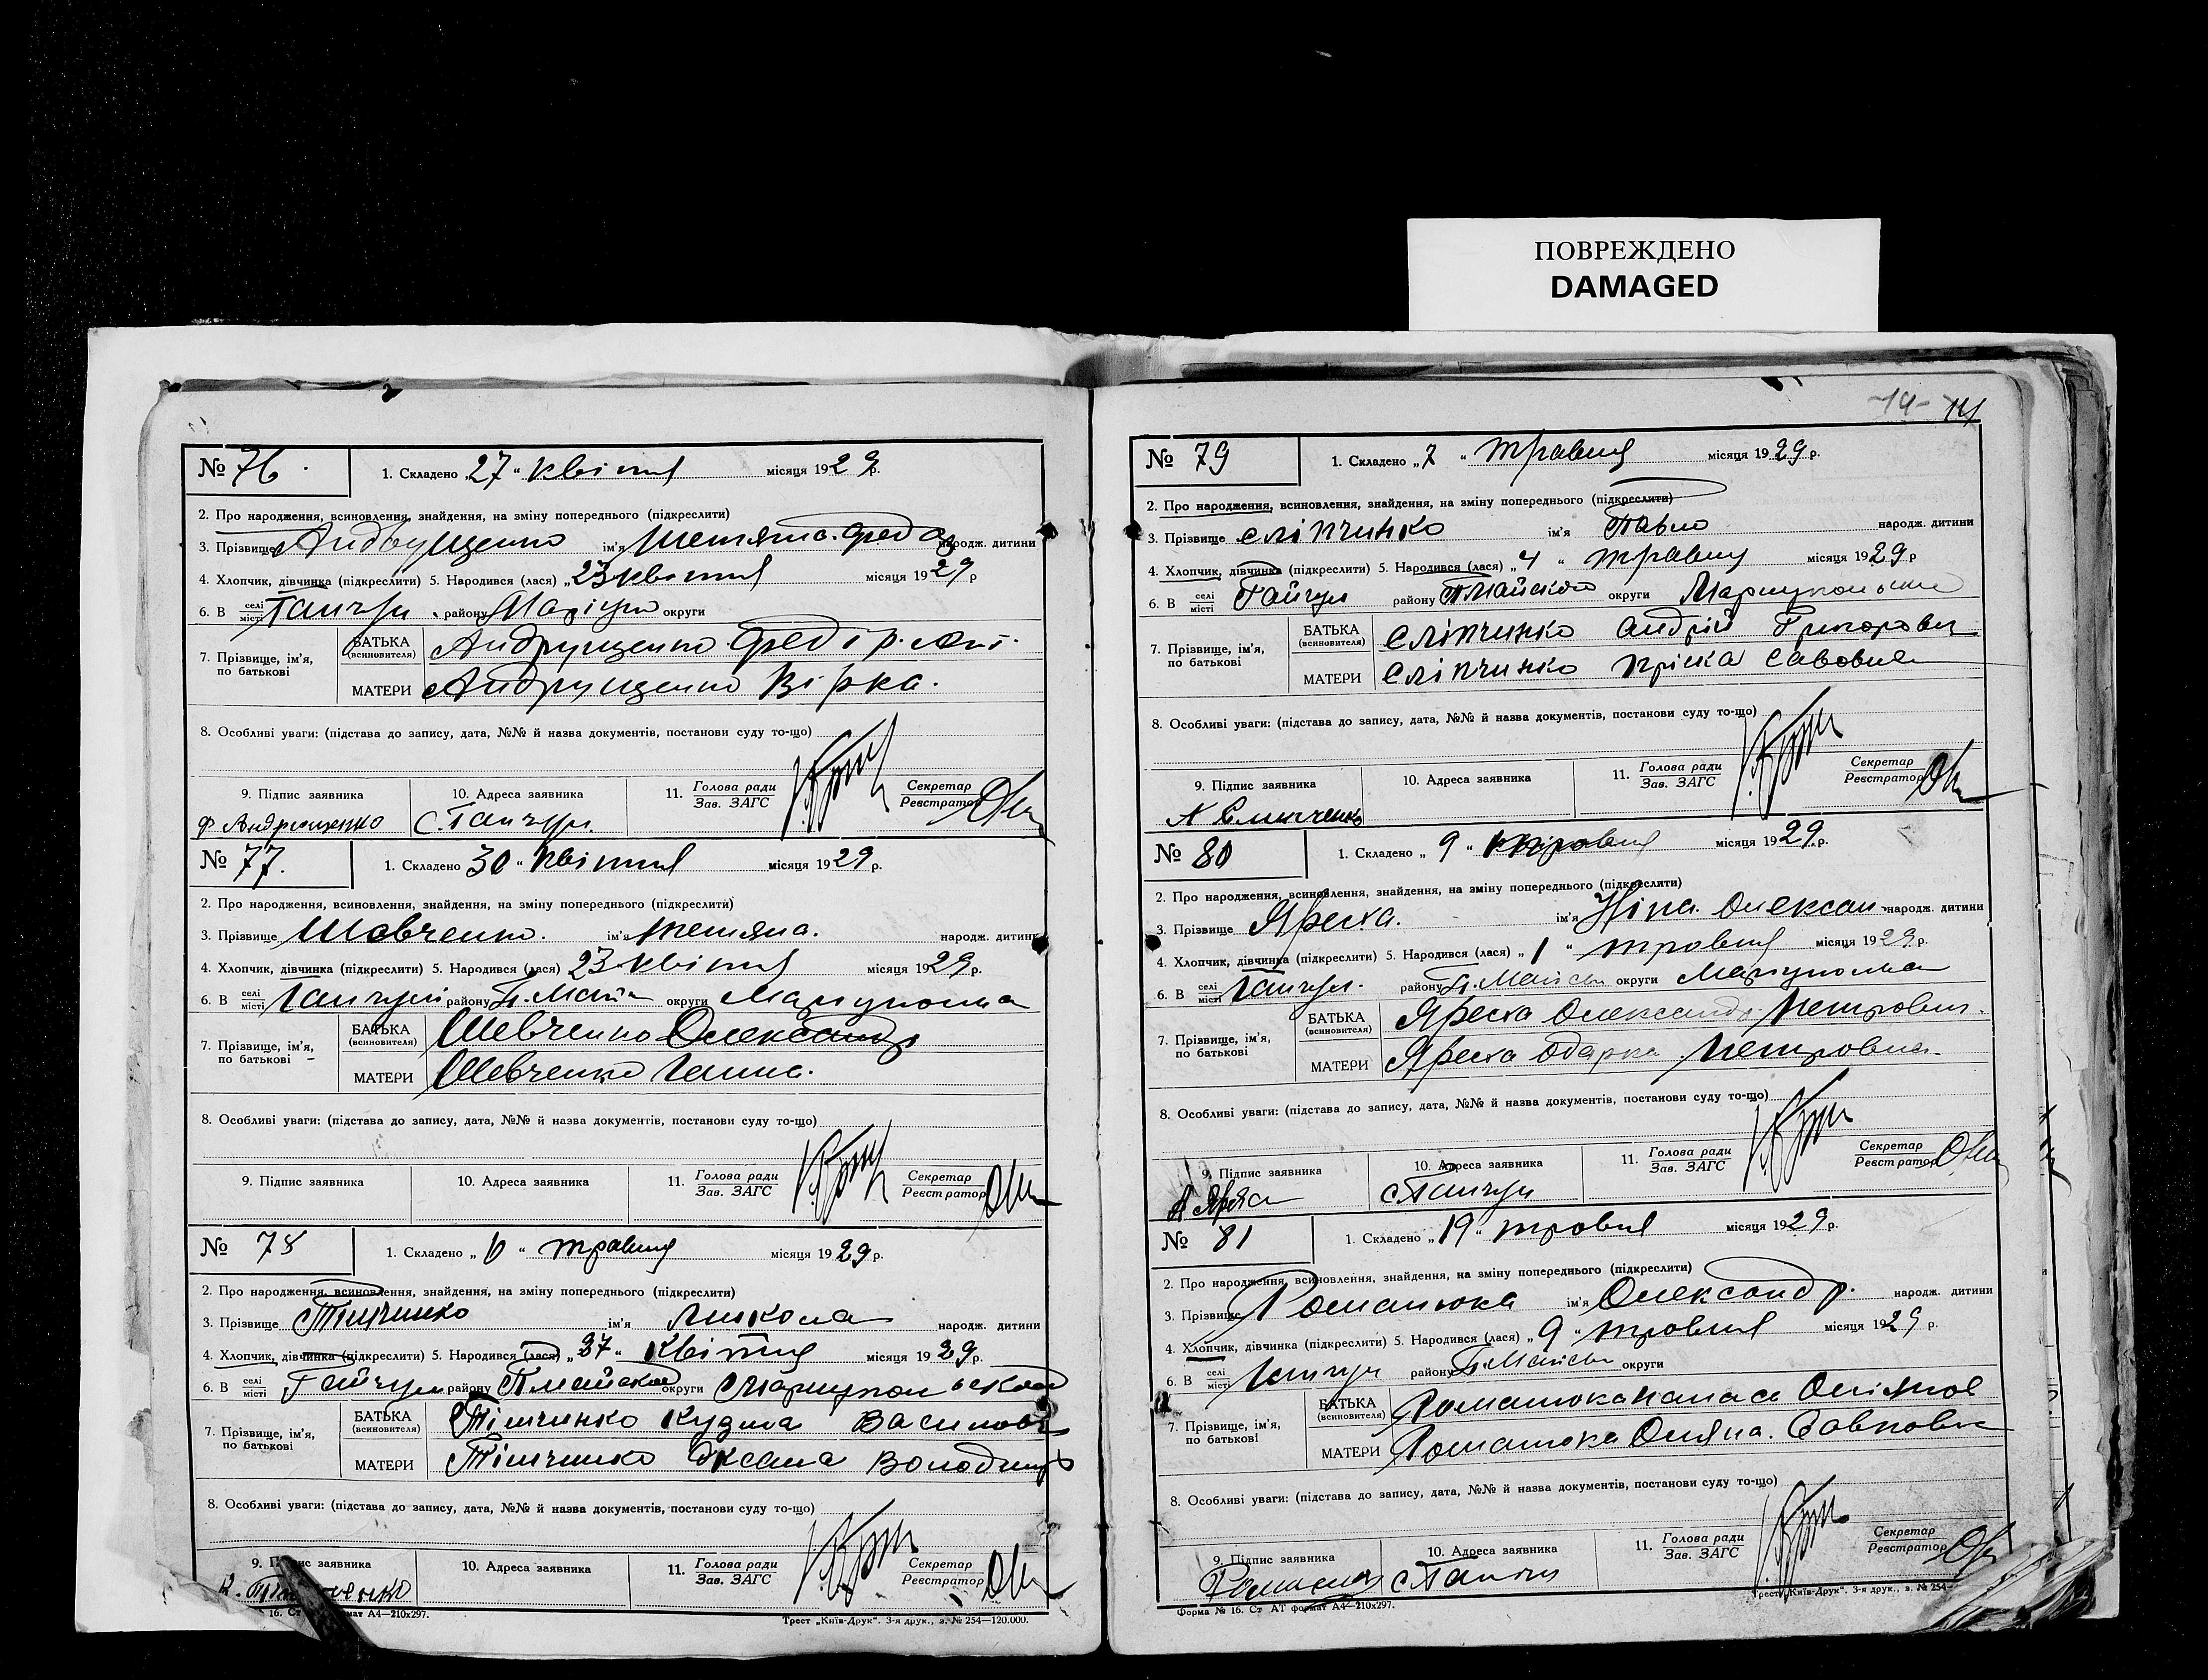 ПОВРЕЖДЕНО
DAMAGED
№ 76.
1. Складено „27“ квітня місяця 1929 р.
2. Про народження, всиновлення, знайдення, на зміну попереднього (підкреслити)
3. Прізвище Андрущенко ім'я Тетяна Федо народж. дитини
4. Хлопчик, дівчинка (підкреслити) 5. Народився (лася) „23 квітня місяця 1929 р
6. В селі місті Гайчул району округи
7. Прізвище, ім'я, по батькові
БАТЬКА (всиновителя) Андрущенко Федір
МАТЕРИ Андрущенко Вірка.
8. Особливі уваги: (підстава до запису, дата, №№ й назва документів, постанови суду то-що)
9. Підпис заявника 10. Адреса заявника 11. Голова ради Зав. ЗАГС Секретар Реєстратор
Ф Андрющенко с. Гайчул.
№ 77.
1. Складено 30 “ квітня місяця 1929 р.
2. Про народження, всиновлення, знайдення, на зміну попереднього (підкреслити)
3. Прізвище Шевченко. ім'я Тетяна. народж. дитини
4. Хлопчик, дівчинка (підкреслити) 5. Народився (лася) 23 квітня місяця 1929 р.
6. В селі місті Гайчул району П. Майськ округи Маріупольська
7. Прізвище, ім'я, по батькові
БАТЬКА (всиновителя) Шевченко Олександр
МАТЕРИ Шевченко Ганна.
8. Особливі уваги: (підстава до запису, дата, №№ й назва документів, постанови суду то-що)
9. Підпис заявника 10. Адреса заявника 11. Голова ради Зав. ЗАГС Секретар Реєстратор
№ 78
1. Складено „ “ травня місяця 1929 р.
2. Про народження, всиновлення, знайдення, на зміну попереднього (підкреслити)
3. Прізвище Тімчинко ім'я Микола народж. дитини
4. Хлопчик, дівчинка (підкреслити) 5. Народився (лася) „27“ Квітня місяця 1929 р.
6. В селі місті Гайчул району Пмайской округи Маріупольской
7. Прізвище, ім'я, по батькові
БАТЬКА (всиновителя) Тімчинко Кузма Василов
МАТЕРИ Тімчинко Оксана Володимир
8. Особливі уваги: (підстава до запису, дата, №№ й назва документів, постанови суду то-що)
9. Підпис заявника 10. Адреса заявника 11. Голова ради Зав. ЗАГС Секретар Реєстратор
16. Ст формат А4—210х297. Трест „Київ-Друк“. 3-я друк., з. № 254—120.000.
-14- 14
№ 79
1. Складено „7“ травня місяця 1929 р.
2. Про народження, всиновлення, знайдення, на зміну попереднього (підкреслити)
3. Прізвище Сліпчинко ім'я Павло народж. дитини
4. Хлопчик, дівчинка (підкреслити) 5. Народився (лася) „4“ травня місяця 1929 р
6. В селі місті Гайчул району Пмайскою округи Маріупольськ
7. Прізвище, ім'я, по батькові
БАТЬКА (всиновителя) Сліпчинко Андрій Григорович
МАТЕРИ Сліпчинко Пріска Савовна
8. Особливі уваги: (підстава до запису, дата, №№ й назва документів, постанови суду то-що)
9. Підпис заявника 10. Адреса заявника 11. Голова ради Зав. ЗАГС Секретар Реєстратор
А Слипченко
№ 80
1. Складено „ 9 “ травня місяця 1929 р.
2. Про народження, всиновлення, знайдення, на зміну попереднього (підкреслити)
3. Прізвище Яреха. ім'я Ніна. Олексан народж. дитини
4. Хлопчик, дівчинка (підкреслити) 5. Народився (лася) „1“ травня місяця 1929 р.
6. В селі місті Гайчул. району П. Майськ округи Маріупольська
7. Прізвище, ім'я, по батькові
БАТЬКА (всиновителя) Яреха Олександр Петрович.
МАТЕРИ Яреха Одарка Петровна.
8. Особливі уваги: (підстава до запису, дата, №№ й назва документів, постанови суду то-що)
9. Підпис заявника 10. Адреса заявника 11. Голова ради Зав. ЗАГС Секретар Реєстратор
с Гайчул
№ 81
1. Складено „19“ травня місяця 1929 р.
2. Про народження, всиновлення, знайдення, на зміну попереднього (підкреслити)
3. Прізвище Романюка ім'я Олександр. народж. дитини
4. Хлопчик, дівчинка (підкреслити) 5. Народився (лася) „9“ травня місяця 1929 р.
6. В селі місті Гайчул району П. Майськ округи
7. Прізвище, ім'я, по батькові
БАТЬКА (всиновителя) Романюка Панаса
МАТЕРИ Романюка Оляна. Савковна
8. Особливі уваги: (підстава до запису, дата, №№ й назва документів, постанови суду то-що)
9. Підпис заявника 10. Адреса заявника 11. Голова ради Зав. ЗАГС Секретар Реєстратор
с Гайчул
Форма № 16. Ст АТ формат А4—210х297. Трест „Київ-Друк“. 3-я друк., з. № 254—